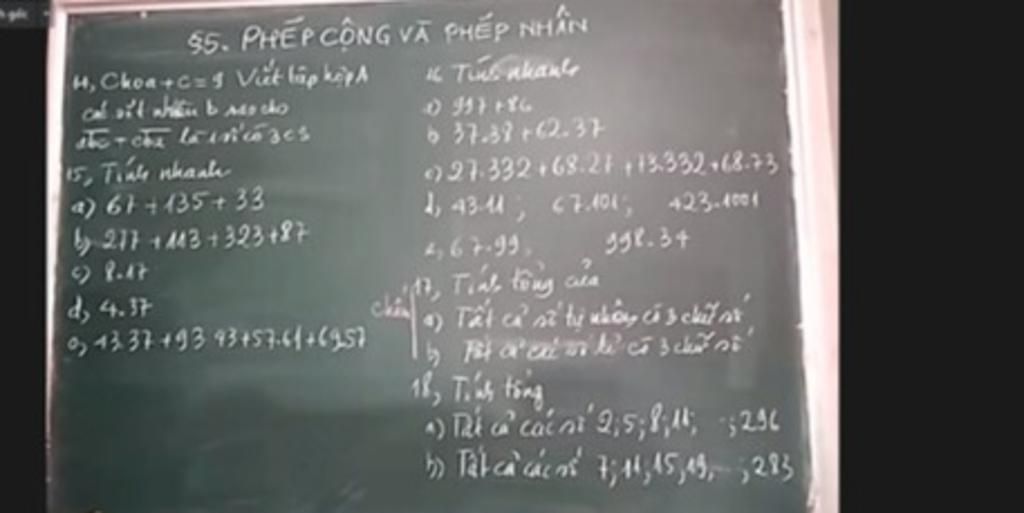 §5. PHÉP CỘNG VÀ PHÉP NHÂN
14, Cho a + c = 9 Viết tập hợp A
các số tự nhiên b sao cho
abc + cba là số có 3 c s
15, Tính nhanh
a) 67 + 135 + 33
b) 277 + 113 + 323 + 87
c) 8.17
d, 4.37
16 Tính nhanh
a) 997 + 86
b 37.38 + 62.37
c) 27.332 + 68.27 + 73.332 + 68.73
d, 43.11 ; 67.101; 423.1001
e, 67.99, 998.34
17, Tính tổng của
a) Tất cả số tự nhiên có 3 chữ số
b) Tất cả các số lẻ có 3 chữ số
18, Tính tổng
a) Tất cả các số 2; 5; 8; 11; ; 296
b) Tất cả các số 7; 11, 15, 19, ; 283